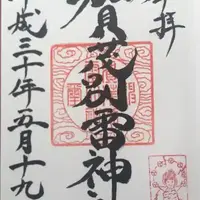 奉拝
賀茂別雷神社
平成三十年五月十九